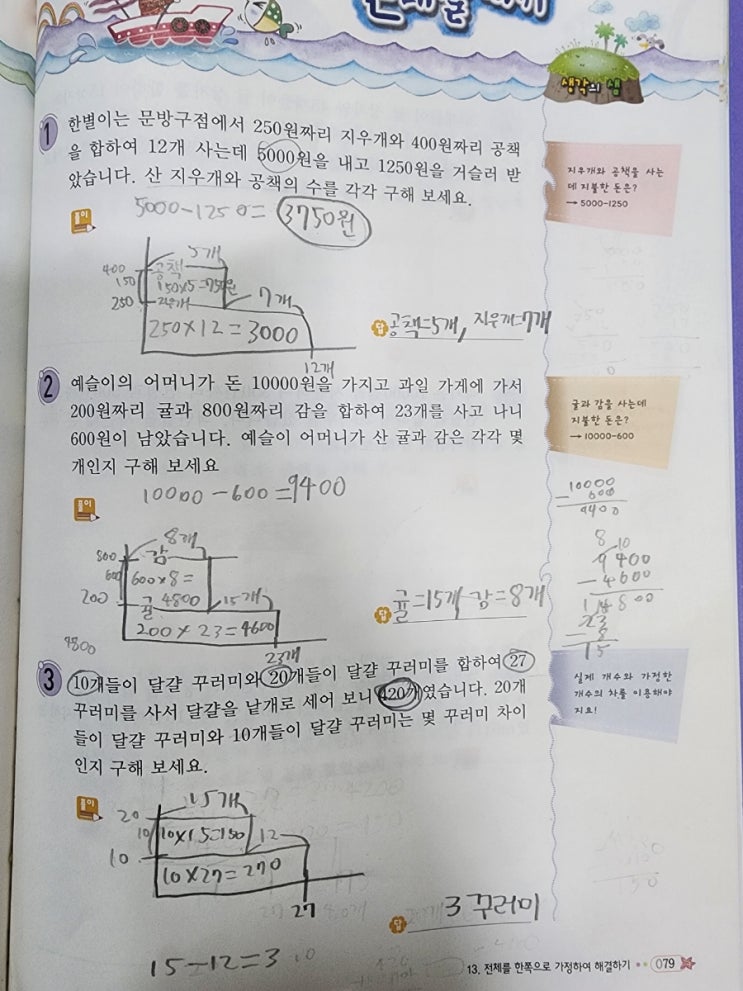 생각의 샘
1 한별이는 문방구점에서 250원짜리 지우개와 400원짜리 공책
을 합하여 12개 사는데 5000원을 내고 1250원을 거슬러 받
았습니다. 산 지우개와 공책의 수를 각각 구해 보세요.
지우개와 공책을 사는
데 지불한 돈은?
→ 5000-1250
풀이
5000-1250= 3750원
5개
400 공책
150 150×5=750원
250 지우개 7개
250×12=3000
12개
답 공책=5개, 지우개=7개
2 예슬이의 어머니가 돈 10000원을 가지고 과일 가게에 가서
200원짜리 귤과 800원짜리 감을 합하여 23개를 사고 나니
600원이 남았습니다. 예슬이 어머니가 산 귤과 감은 각각 몇
개인지 구해 보세요
귤과 감을 사는데
지불한 돈은?
→ 10000-600
풀이
10000-600=9400
8개
800 감
600 600×8=
200 귤 4800 15개
200×23=4600
23개
4800
답 귤=15개, 감=8개
10000
-600
9400
8 10
9400
-4600
4800
23
-8
15
3 10개들이 달걀 꾸러미와 20개들이 달걀 꾸러미를 합하여 27
꾸러미를 사서 달걀을 낱개로 세어 보니 420개였습니다. 20개
들이 달걀 꾸러미와 10개들이 달걀 꾸러미는 몇 꾸러미 차이
인지 구해 보세요.
실제 개수와 가정한
개수의 차를 이용해야
지요!
풀이
15개
20
10 10×15=150 12
10
10×27=270
27
답 3 꾸러미
15-12=3
13. 전체를 한쪽으로 가정하여 해결하기 •• 079